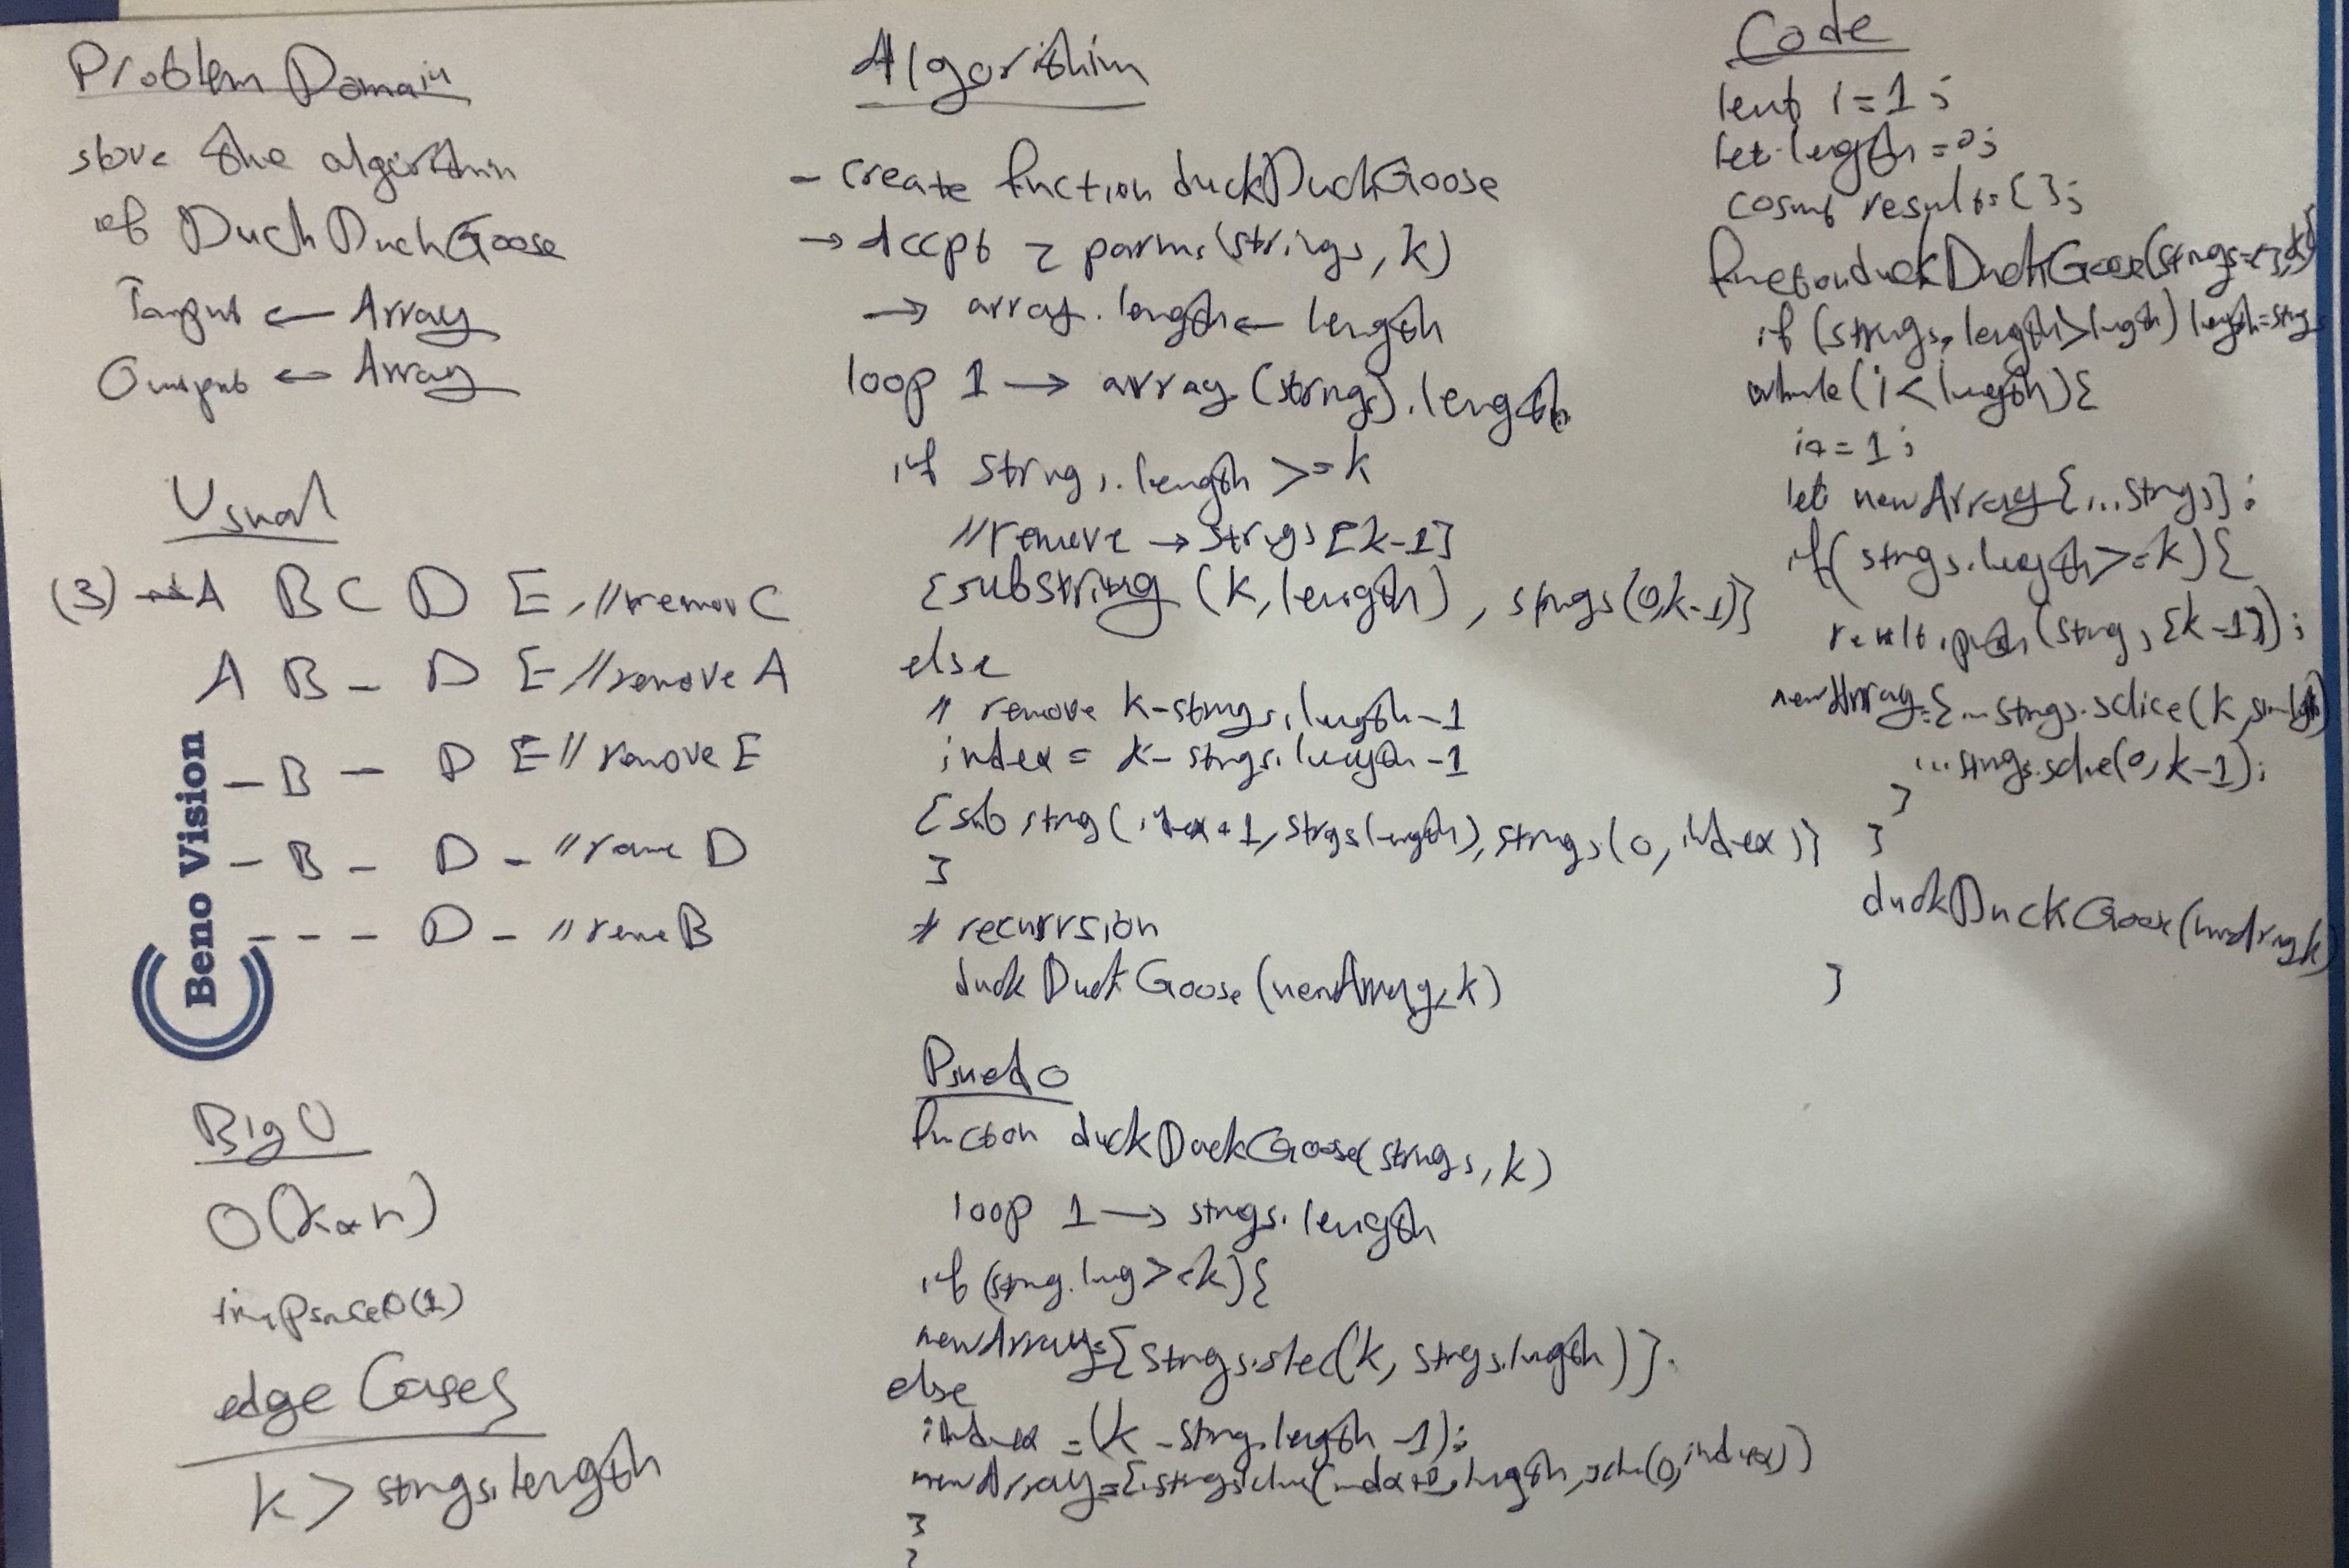 Problem Domain
slove the algorithm
of DuckDuckGoose
Input ← Array
Output ← Array
Usual
(3) → A B C D E //remov C
A B - D E //remove A
- B - D E // remove E
- B - D - // D
- - - D - // B
Beno Vision
Big O
O(k*n)
O(1)
edge Cases
k > strings.length
Algorithim
- create function duckDuckGoose
→ Accept 2 parms (strings, k)
→ array.length ← length
loop 1 → array (strings).length
if strings.length >= k
//remove → strings [k-1]
[substring (k, length), strings(0,k-1)]
else
// remove k-strings.length-1
index = k-strings.length-1
[substring(index+1, strings length), strings(0, index)]
}
* recurrsion
duckDuckGoose (newArray, k)
Psuedo
function duckDuckGoose(strings, k)
loop 1 → strings.length
if (string.leng >= k){
newArray=[strings.slec(k, strings.length)].
else
index = (k - string.length -1);
newArray=[
}
}
Code
let i=1;
let length=0;
const result=[];
function duckDuckGoose(strings=[],k){
if (strings.length>length) length=string
while (i<length){
i+=1;
let newArray=[...strings];
if(strings.length>=k){
result.push(strings[k-1]);
newArray=[...strings.sclice(k,
...strings.sclie(0, k-1);
}
}
duckDuckGoose(newArray,k)
}